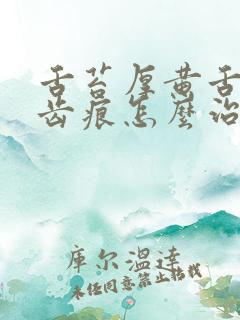 舌苔厚黄舌
齿痕怎麽治
库尔温达
未经同意禁止搭载